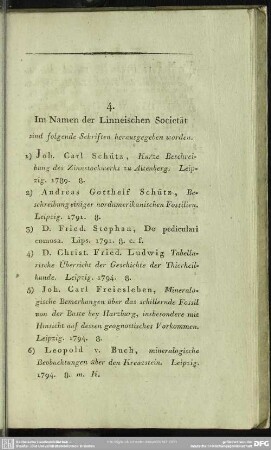 4.
Im Namen der Linneischen Societät
sind folgende Schriften herausgegeben worden.
1) Joh. Carl Schütz, Kurze Beschrei-
bung des Zinnstockwerks zu Altenberg. Leip-
zig. 1789. 8.
2) Andreas Gotthelf Schütz, Be-
schreibung einiger nordamerikanischen Fossilien.
Leipzig. 1791. 8.
3) D. Fried. Stephan, De pediculari
comosa. Lips. 1791. 8. c. f.
4) D. Christ. Fried. Ludwig Tabella-
rische Uberricht der Geschichte der Thierheil-
kunde. Leipzig. 1794. 8.
5) Joh. Carl Freiesleben, Mineralo-
gische Bemerkungen über das schillernde Fossil
von der Baste bey Harzburg, insbesondere mit
Hinsicht auf dessen geognostisches Vorkommen.
Leipzig. 1794. 8.
6) Leopold v. Buch, mineralogische
Beobachtungen über den Kreuzstein. Leipzig.
1794. 8. m. K.
DFG